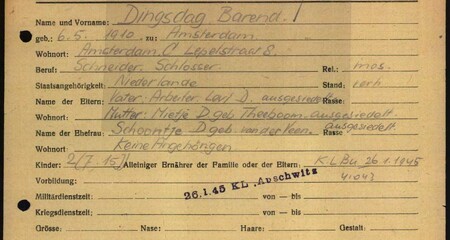 Name und Vorname: Dingsdag Barend.
geb.: 6.5. 1910. zu: Amsterdam.
Wohnort: Amsterdam. C Lepelstraat 8.
Beruf: Schneider. Schlosser. Rel.: mos.
Staatsangehörigkeit: Niederlande Stand: verh
Name der Eltern: Vater: Arbeiter. Levi D. ausgesiedelt Rasse:
Wohnort: Mutter: Mietje D. geb. Theeboom. ausgesiedelt.
Name der Ehefrau: Schoontje D. geb. van der Veen. ausgesiedelt. Rasse
Wohnort Keine Angehörigen
Kinder: 2 (7. 15) Alleiniger Ernährer der Familie oder der Eltern: K.L.Bu. 26.1.1945
Vorbildung: 26.1.45 KL. Auschwitz
Militärdienstzeit: von — bis
Kriegsdienstzeit: von — bis
Grösse: Nase: Haare: Gestalt: